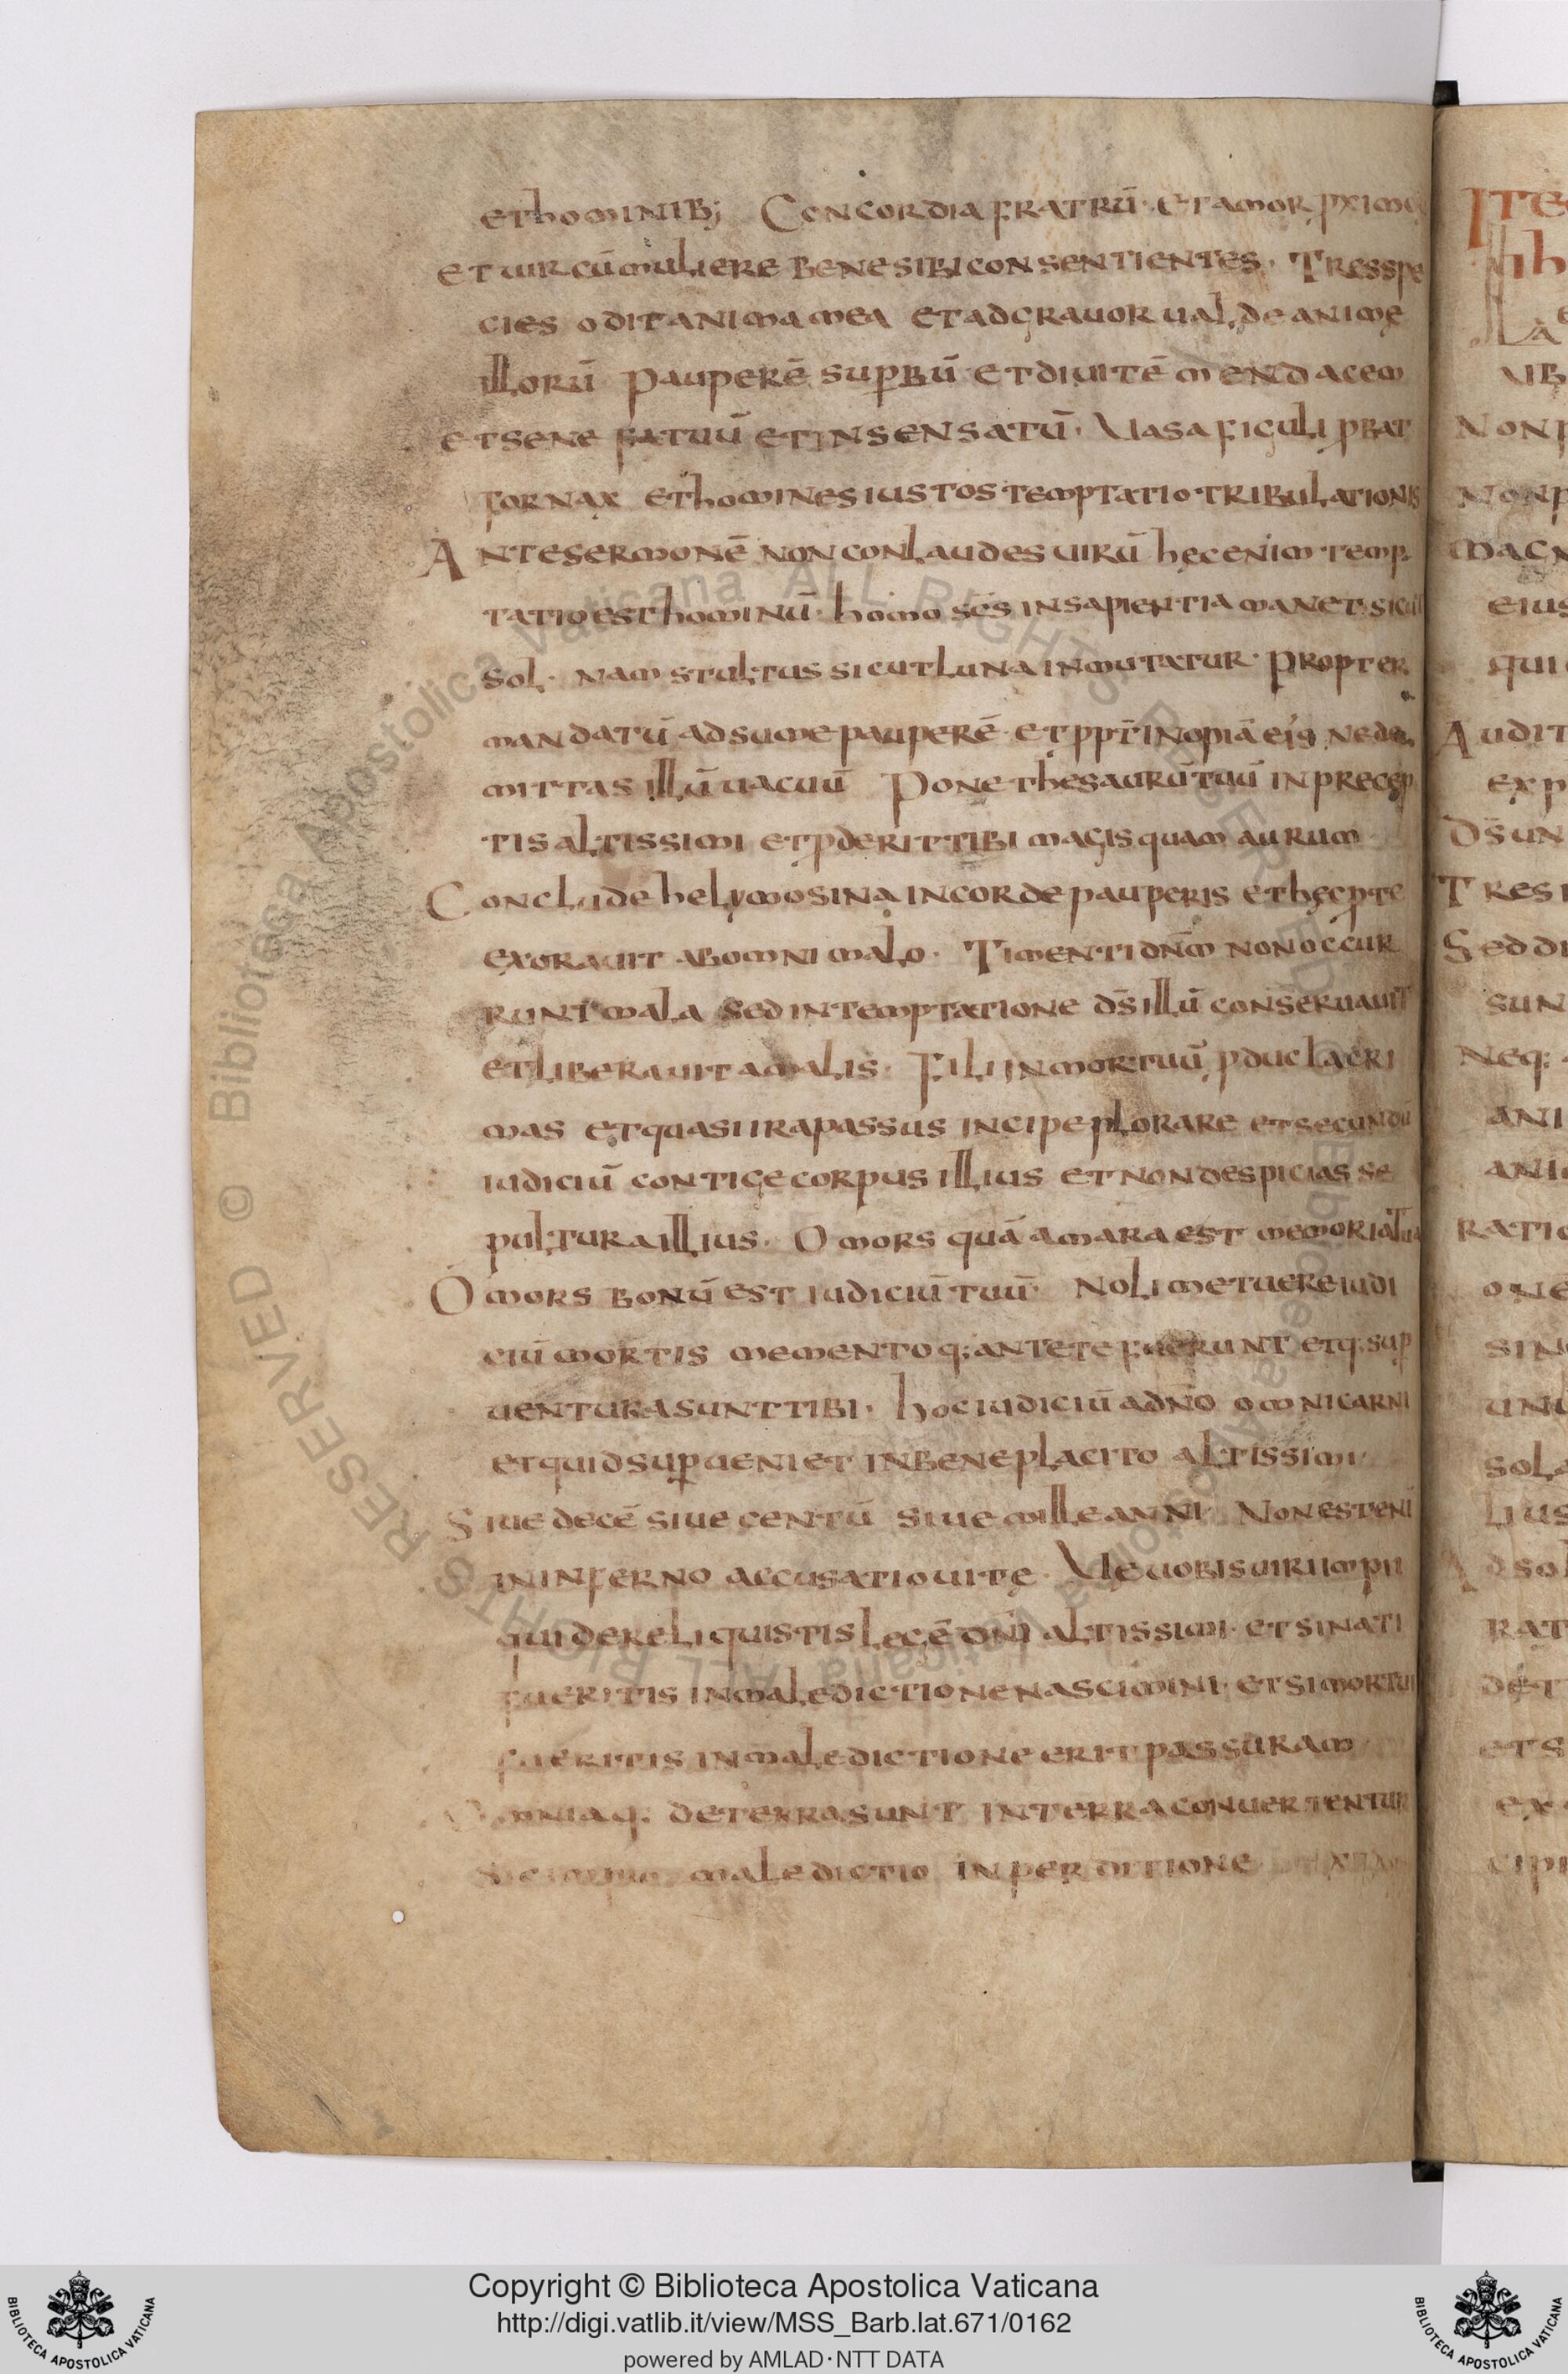 ethominib; Concordia fratrū· et amor pximo
et uir cū muliere bene sibi consentientes· Tres spe
cies odit anima mea et adgrauor ualde animę
illorū pauperē superbū· et diuitē mendacem
et sene fatuū et insensatū· Uasa figuli pbat
fornax et homines iustos temptatio tribulationis
Ante sermonē non conlaudes uirū hęc enim temp
tatio est hominū· homo scs̄ in sapientia manet· sicut
sol· nam stultus sicut luna inmutatur· Propter
mandatū adsume pauperē· et pp̄t inopiā ei9 ne de
mittas illū uacuū Pone thesaurū tuū in precep
tis altissimi et pderit tibi magis quam aurum
Conclude helymosina in corde pauperis et hęc p te
exorauit ab omni malo· Timenti dn̄m non occur
runt mala sed in temptatione ds̄ illū conseruauit
et liberauit a malis· Fili in mortuū pduc lacri
mas et quasi ira passus incipe plorare et secundū
iudiciū contige corpus illius et non despicias se
pultura illius· O mors quā amara est memoria tua
O mors bonū est iudiciū tuū· Noli metuere iudi
ciū mortis memento q; ante te fuerunt et q; sup
uentura sunt tibi· hoc iudiciū a dn̄o omni carni
et quid superueniet in beneplacito altissimi
Siue decē siue centū siue mille anni· Non est enī
in inferno accusatio uitę· Ue uobis uiri impii
qui dereliquistis legē dn̄i altissimi· et si nati
fueritis in maledictione nascimini· et si mortui
fueritis in maledictione erit pars uram
Omnia q; de terra sunt in terra conuertentur
Sic maledictio in perditione
Copyright © Biblioteca Apostolica Vaticana
http://digi.vatlib.it/view/MSS_Barb.lat.671/0162
powered by AMLAD·NTT DATA